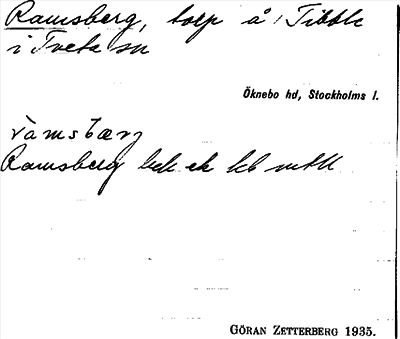 Ramsberg, torp å Tibble
i Tveta sn
Öknebo hd, Stockholms l.
ràmsbærj
Ramsberg bek ek kb mtl
GÖRAN ZETTERBERG 1935.